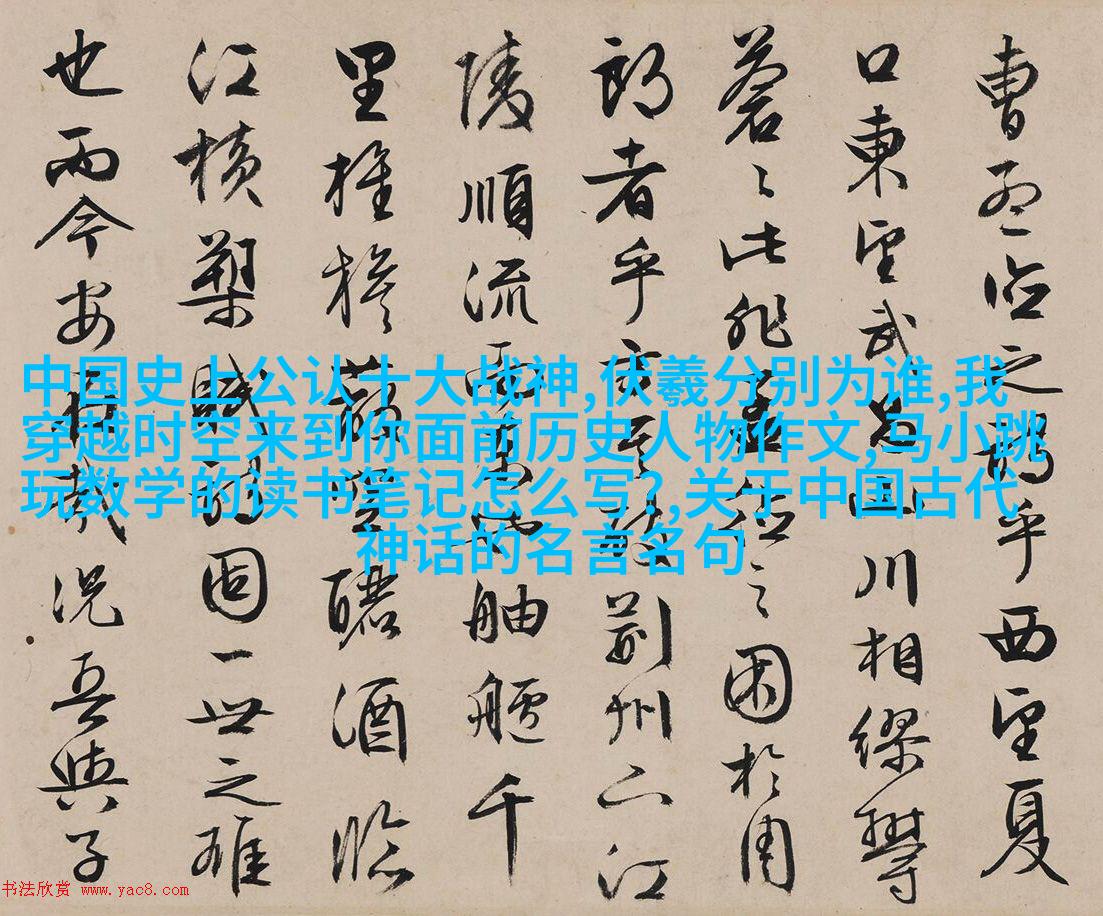 曹孟德之詩乎西望夏
口東望武昌山川相繆鬱
蒼々此非孟德之困於周
郎者乎方其破荊州下江
陵順流而東也舳艫千
里旌旗蔽空釃酒臨
江橫槊賦詩固一世之雄
也而今安在哉況吾與子
中国史上公认十大战神,伏羲分别为谁,我
穿越时空来到你面前历史人物作文,马小跳
玩数学的读书笔记怎么写?,关于中国古代
神话的名言名句
书法欣赏 www.yac8.com